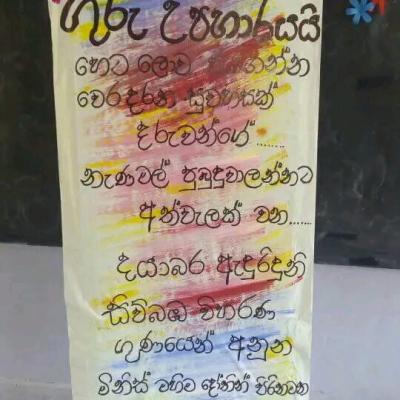 ගුරු උපහාරයයි
හෙට ලොව
වෙරදරන සුවහසක්
දරුවන්ගේ ........
නැණවල් පුබුදුවාලන්නට
අත්වැලක් වන......
දයාබර ඇදුරිදුනි
සිව්බඹ විහරණ
ගුණයෙන් අනූන
මිනිස් මහිම දෝතින් පිරිනමන